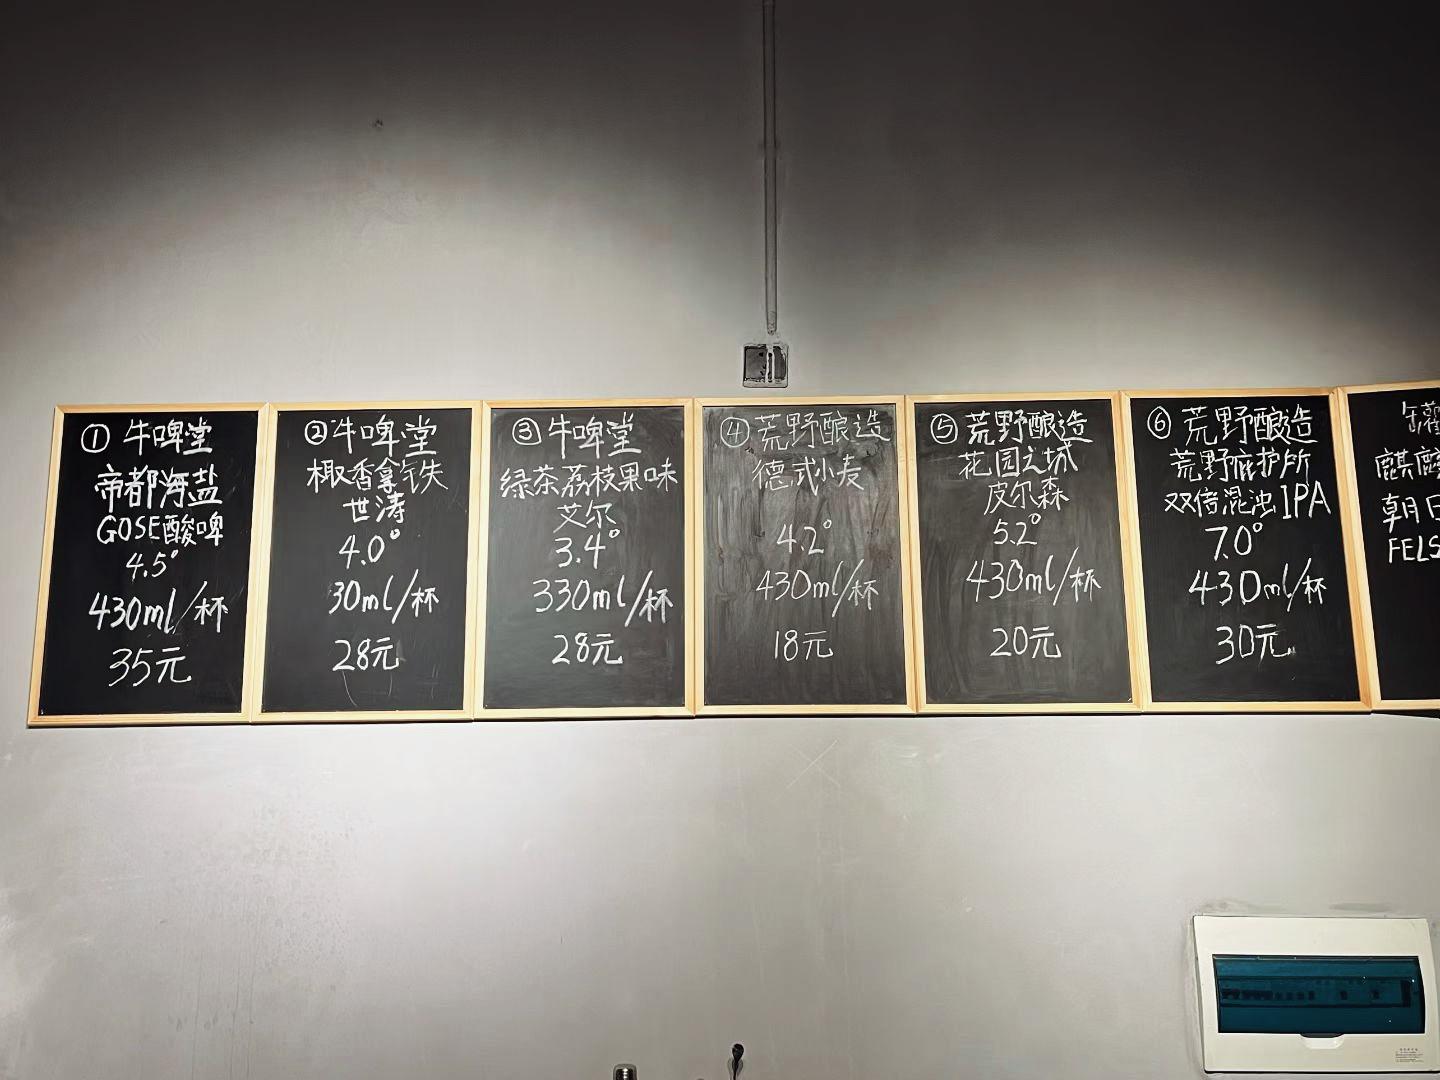 ① 牛啤堂
帝都海盐
GOSE酸啤
4.5°
430ml/杯
35元
② 牛啤堂
椰香拿铁
世涛
4.0°
30ml/杯
28元
③ 牛啤堂
绿茶荔枝果味
艾尔
3.4°
330ml/杯
28元
④ 荒野酿造
德式小麦
4.2°
430ml/杯
18元
⑤ 荒野酿造
花园之城
皮尔森
5.2°
430ml/杯
20元
⑥ 荒野酿造
荒野庇护所
双倍混浊IPA
7.0°
430ml/杯
30元
罐
麒麟
朝日
FELS